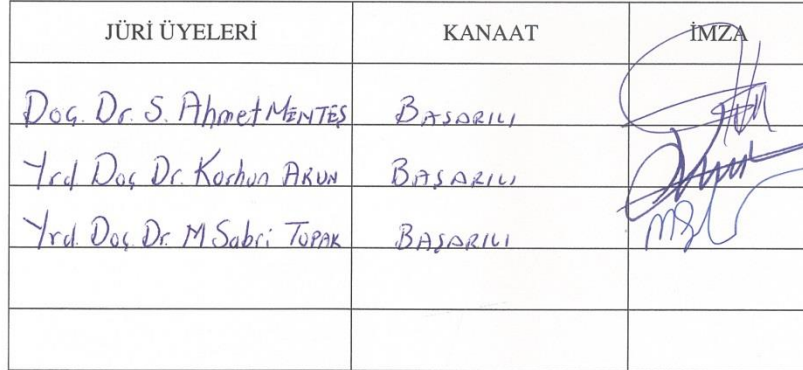 JÜRİ ÜYELERİ KANAAT İMZA
Doç. Dr. S. Ahmet MENTEŞ BAŞARILI
Yrd. Doç. Dr. Korhan ARUN BAŞARILI
Yrd. Doç. Dr. M Sabri TOPAK BAŞARILI